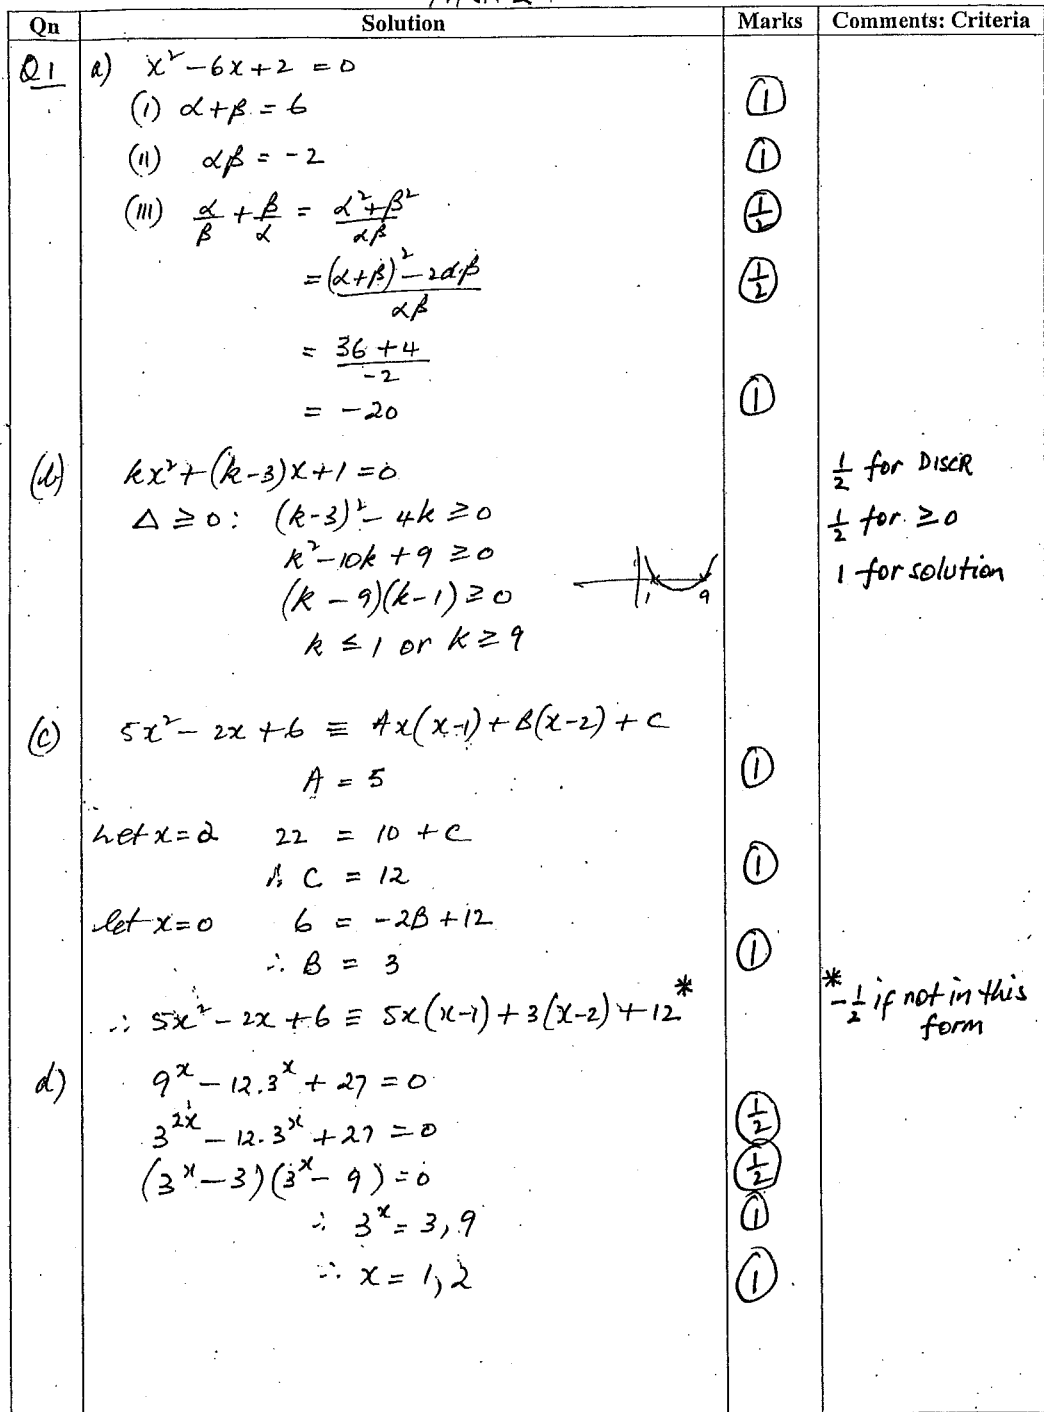 Qn Solution Marks Comments: Criteria
Q1 a) x² - 6x + 2 = 0
(i) α + β = 6 ①
(ii) αβ = -2 ①
(iii) α/β + β/α = (α² + β²)/αβ ½
= ((α + β)² - 2αβ)/αβ ½
= (36 + 4)/-2
= -20 ①
(b) kx² + (k-3)x + 1 = 0 ½ for DISCR
Δ ≥ 0: (k-3)² - 4k ≥ 0 ½ for ≥ 0
k² - 10k + 9 ≥ 0 1 for solution
(k - 9)(k - 1) ≥ 0 1 9
k ≤ 1 or k ≥ 9
(c) 5x² - 2x + 6 ≡ Ax(x-1) + B(x-2) + C
A = 5 ①
Let x = 2 22 = 10 + C
∴ C = 12 ①
let x = 0 6 = -2B + 12
∴ B = 3 ①
∴ 5x² - 2x + 6 ≡ 5x(x-1) + 3(x-2) + 12 * * -½ if not in this
form
d) 9^x - 12.3^x + 27 = 0
3^2x - 12.3^x + 27 = 0 ½
(3^x - 3)(3^x - 9) = 0 ½
∴ 3^x = 3, 9 ①
∴ x = 1, 2 ①